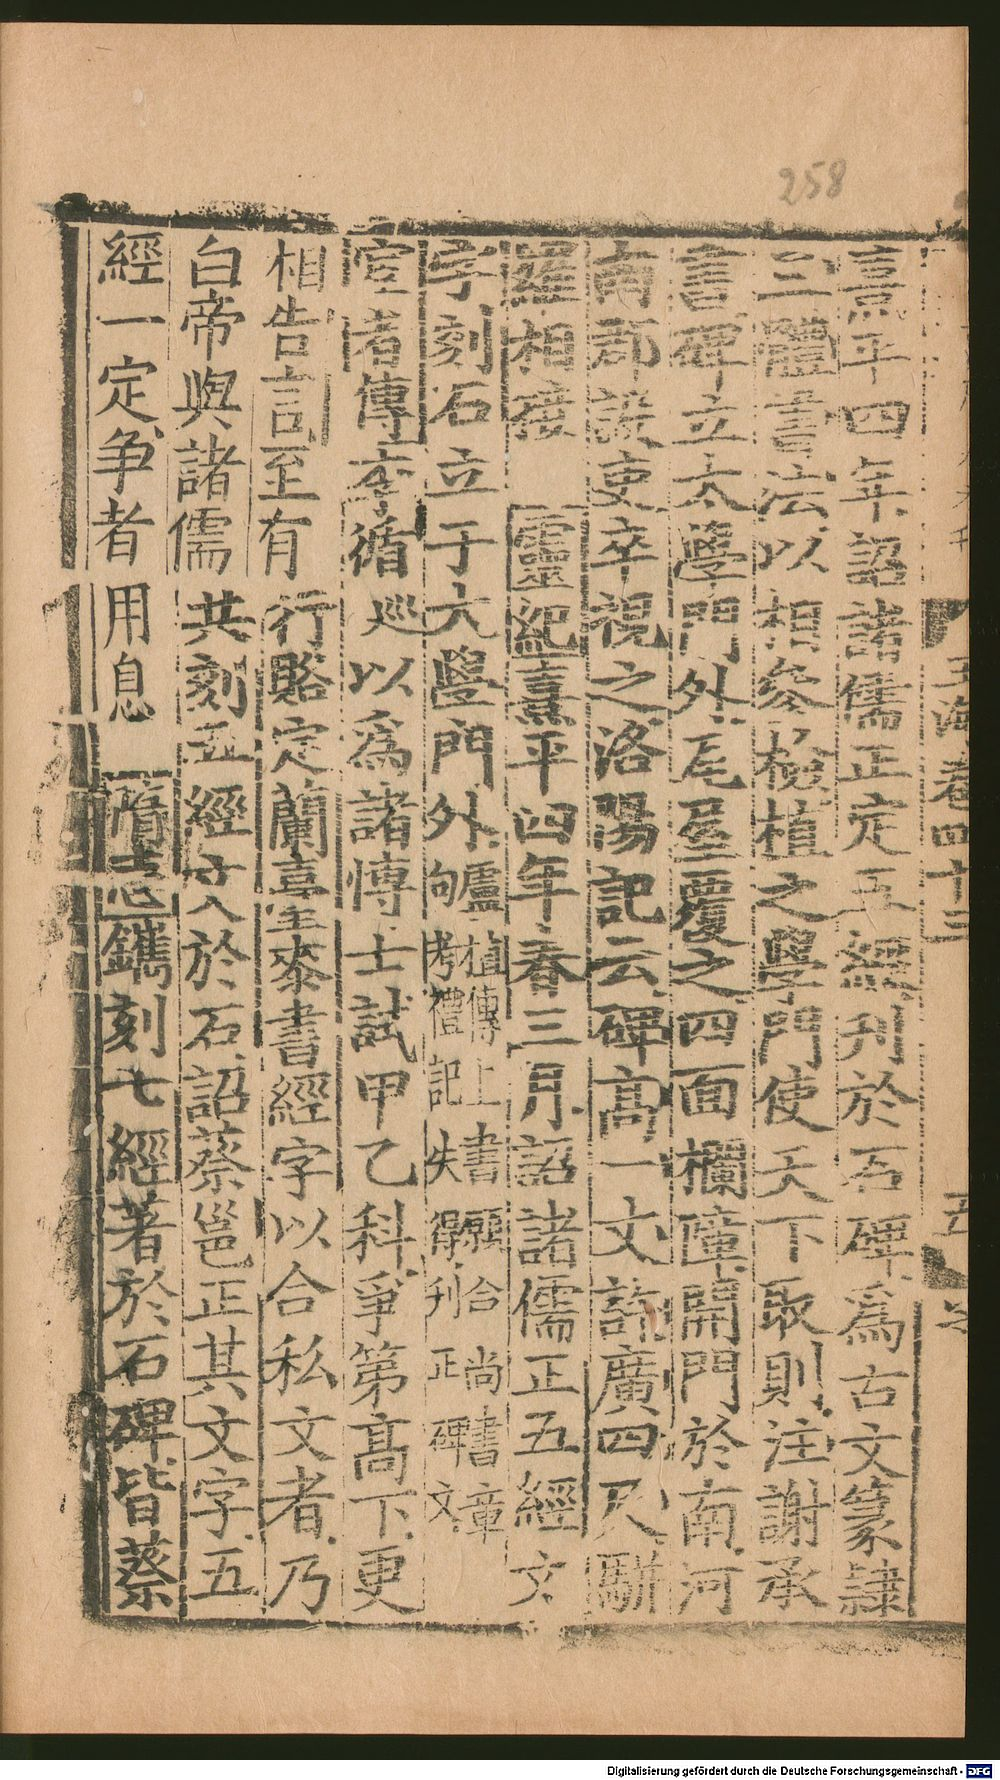 258
玉海卷四十三
五
熹平四年詔諸儒正定五經刊於石碑爲古文篆隷
三體書法以相參檢植之學門使天下取則注謝承
書碑立太學門外尾屋覆之四面欄障開門於南河
南郡設吏卒視之洛陽記云碑高一文許廣四尺駢
羅相接 靈紀熹平四年春三月詔諸儒正五經文
字刻石立于太學門外盧植傳上書願合尚書章句考禮記失得刋正碑文
宦者傳李循巡以爲諸博士試甲乙科爭第高下更
相告言至有行賂定蘭臺桼書經字以合私文者乃
白帝與諸儒共刻五經文於石詔蔡邕正其文字五
經一定争者用息 隋志鐫刻七經著於石碑皆蔡
Digitalisierung gefördert durch die Deutsche Forschungsgemeinschaft - DFG